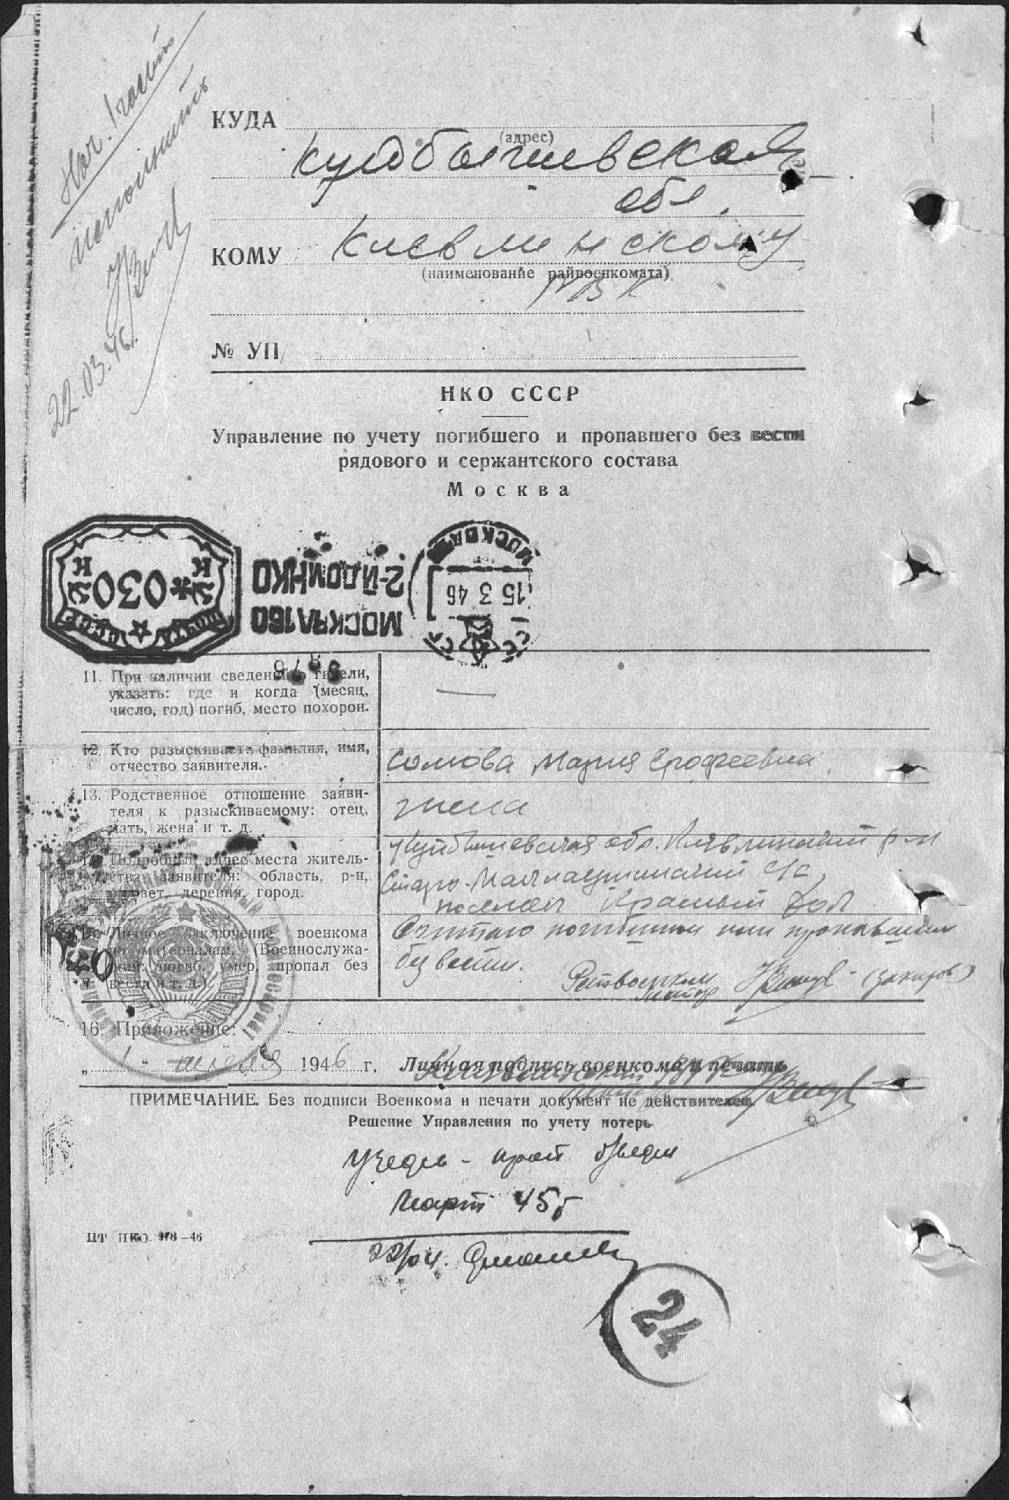 Нач. I части
исполнить
22.03.46.
КУДА
(адрес)
Куйбышевская
обл.
КОМУ Клевлинскому
(наименование райвоенкомата)
РВК
№ УП/
НКО СССР
Управление по учету погибшего и пропавшего без вести
рядового и сержантского состава
Москва
ПОЧТА СССР
К *030* К
МОСКВА 160
2-й ДОМ НКО
МОСКВА
15 3 46
СССР
11. При наличии сведений о гибели,
указать: где и когда (месяц,
число, год) погиб, место похорон.
—
12. Кто разыскивает фамилия, имя,
отчество заявителя.
Сомова Мария Ерофеевна.
13. Родственное отношение заяви-
теля к разыскиваемому: отец,
мать, жена и т. д.
жена
14. Подробный адрес места житель-
ства заявителя: область, р-н,
совет, деревня, город.
Куйбышевская обл. Клявлинский р-н
Старо-Маклаушинский с/с,
поселок Красный Дол
15. Личное заключение военкома
по материалам. (Военнослужа-
щий: погиб, умер, пропал без
вести и т. д.)
Считаю погибшим или пропавшим
без вести.
Райвоенком
майор (Закиров)
16. Приложение:
„1" апреля 1946 г. Личная подпись военкома и печать
Клявлинский РВК
ПРИМЕЧАНИЕ. Без подписи Военкома и печати документ не действителен
Решение Управления по учету потерь
Учесть - проп б/вести
Март 45 г
22/04.
ЦТ НКО 978-46
24